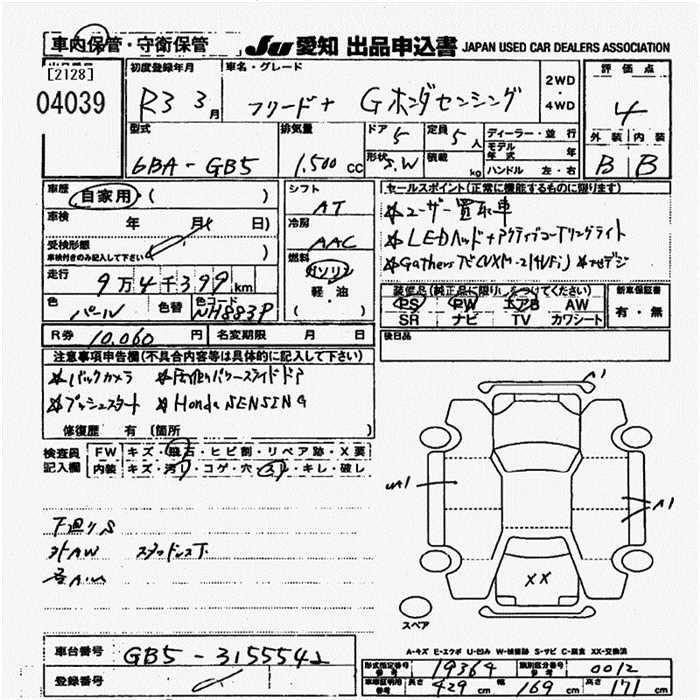 車内保管・守衛保管 Ju 愛知 出品申込書 JAPAN USED CAR DEALERS ASSOCIATION
[2128]
04039
初度登録年月 R3 3月
車名・グレード フリード+ Gホンダセンシング
2WD・4WD
評価点 4
外装 内装
B B
型式 6BA-GB5
排気量 1,500cc
ドア 5
形状 S.W
定員 5人
積載 kg
ディーラー・並行
モデル年式 年
ハンドル 左・右
車歴 自家用・( )
車検 年 月( 日)
受検形態
車検付きのみ記入して下さい
走行 9万4千399km
色 パール 色替 色コード NH883P
シフト AT
冷房 AAC
燃料 ガソリン
軽・油
( )
セールスポイント(正常に機能するものに限ります)
☆ユーザー買取車
☆LEDヘッド+アクティブコーナリングライト
☆Gathersナビ(VXM-214VFi)☆ナビデジ
装備品(純正品に限り○をつけてください)
PS PW エアB AW
SR ナビ TV カワシート
新車保証書
有・無
R券 10,060円 名変期限 月 日
後日品
注意事項申告欄(不具合内容等は具体的に記入して下さい)
☆バックカメラ ☆両側パワースライドドア
☆プッシュスタート ☆Honda SENSING
修復歴 有(箇所 )
検査員記入欄
FW キズ・飛石・ヒビ割・リペア跡・X要
内装 キズ・汚れ・コゲ・穴・スレ・キレ・破し
下廻りS
外AW スタッドレス下
A1
A1
XX
スペア
A-キズ E-エクボ U-凹み W-補修跡 S-サビ C-腐食 XX-交換済
車台番号 GB5-3155542
登録番号
形式指定番号 19364 類別区分番号 0012
車庫証明用 長さ 429cm 幅 169cm 高さ 171cm